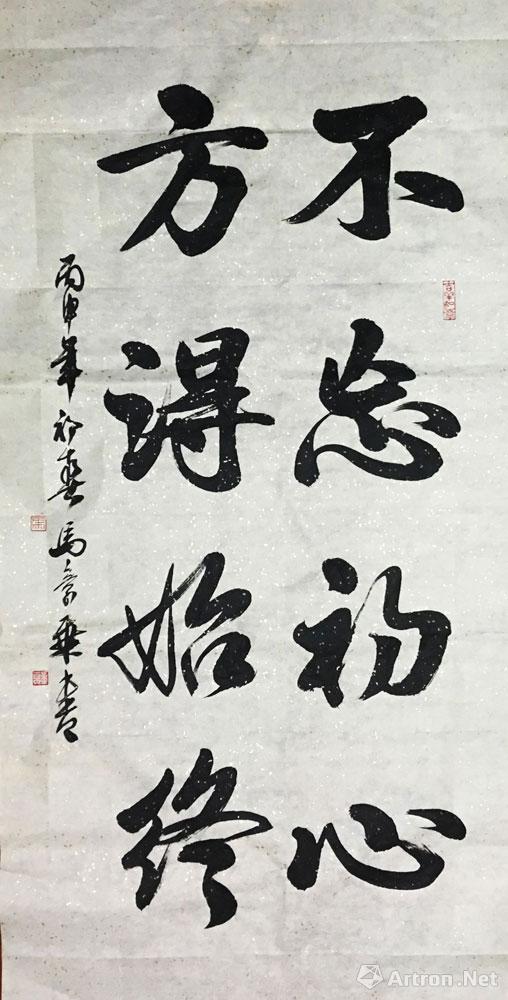 不忘初心
方得始终
丙申年初春马章乘书
Artron.Net